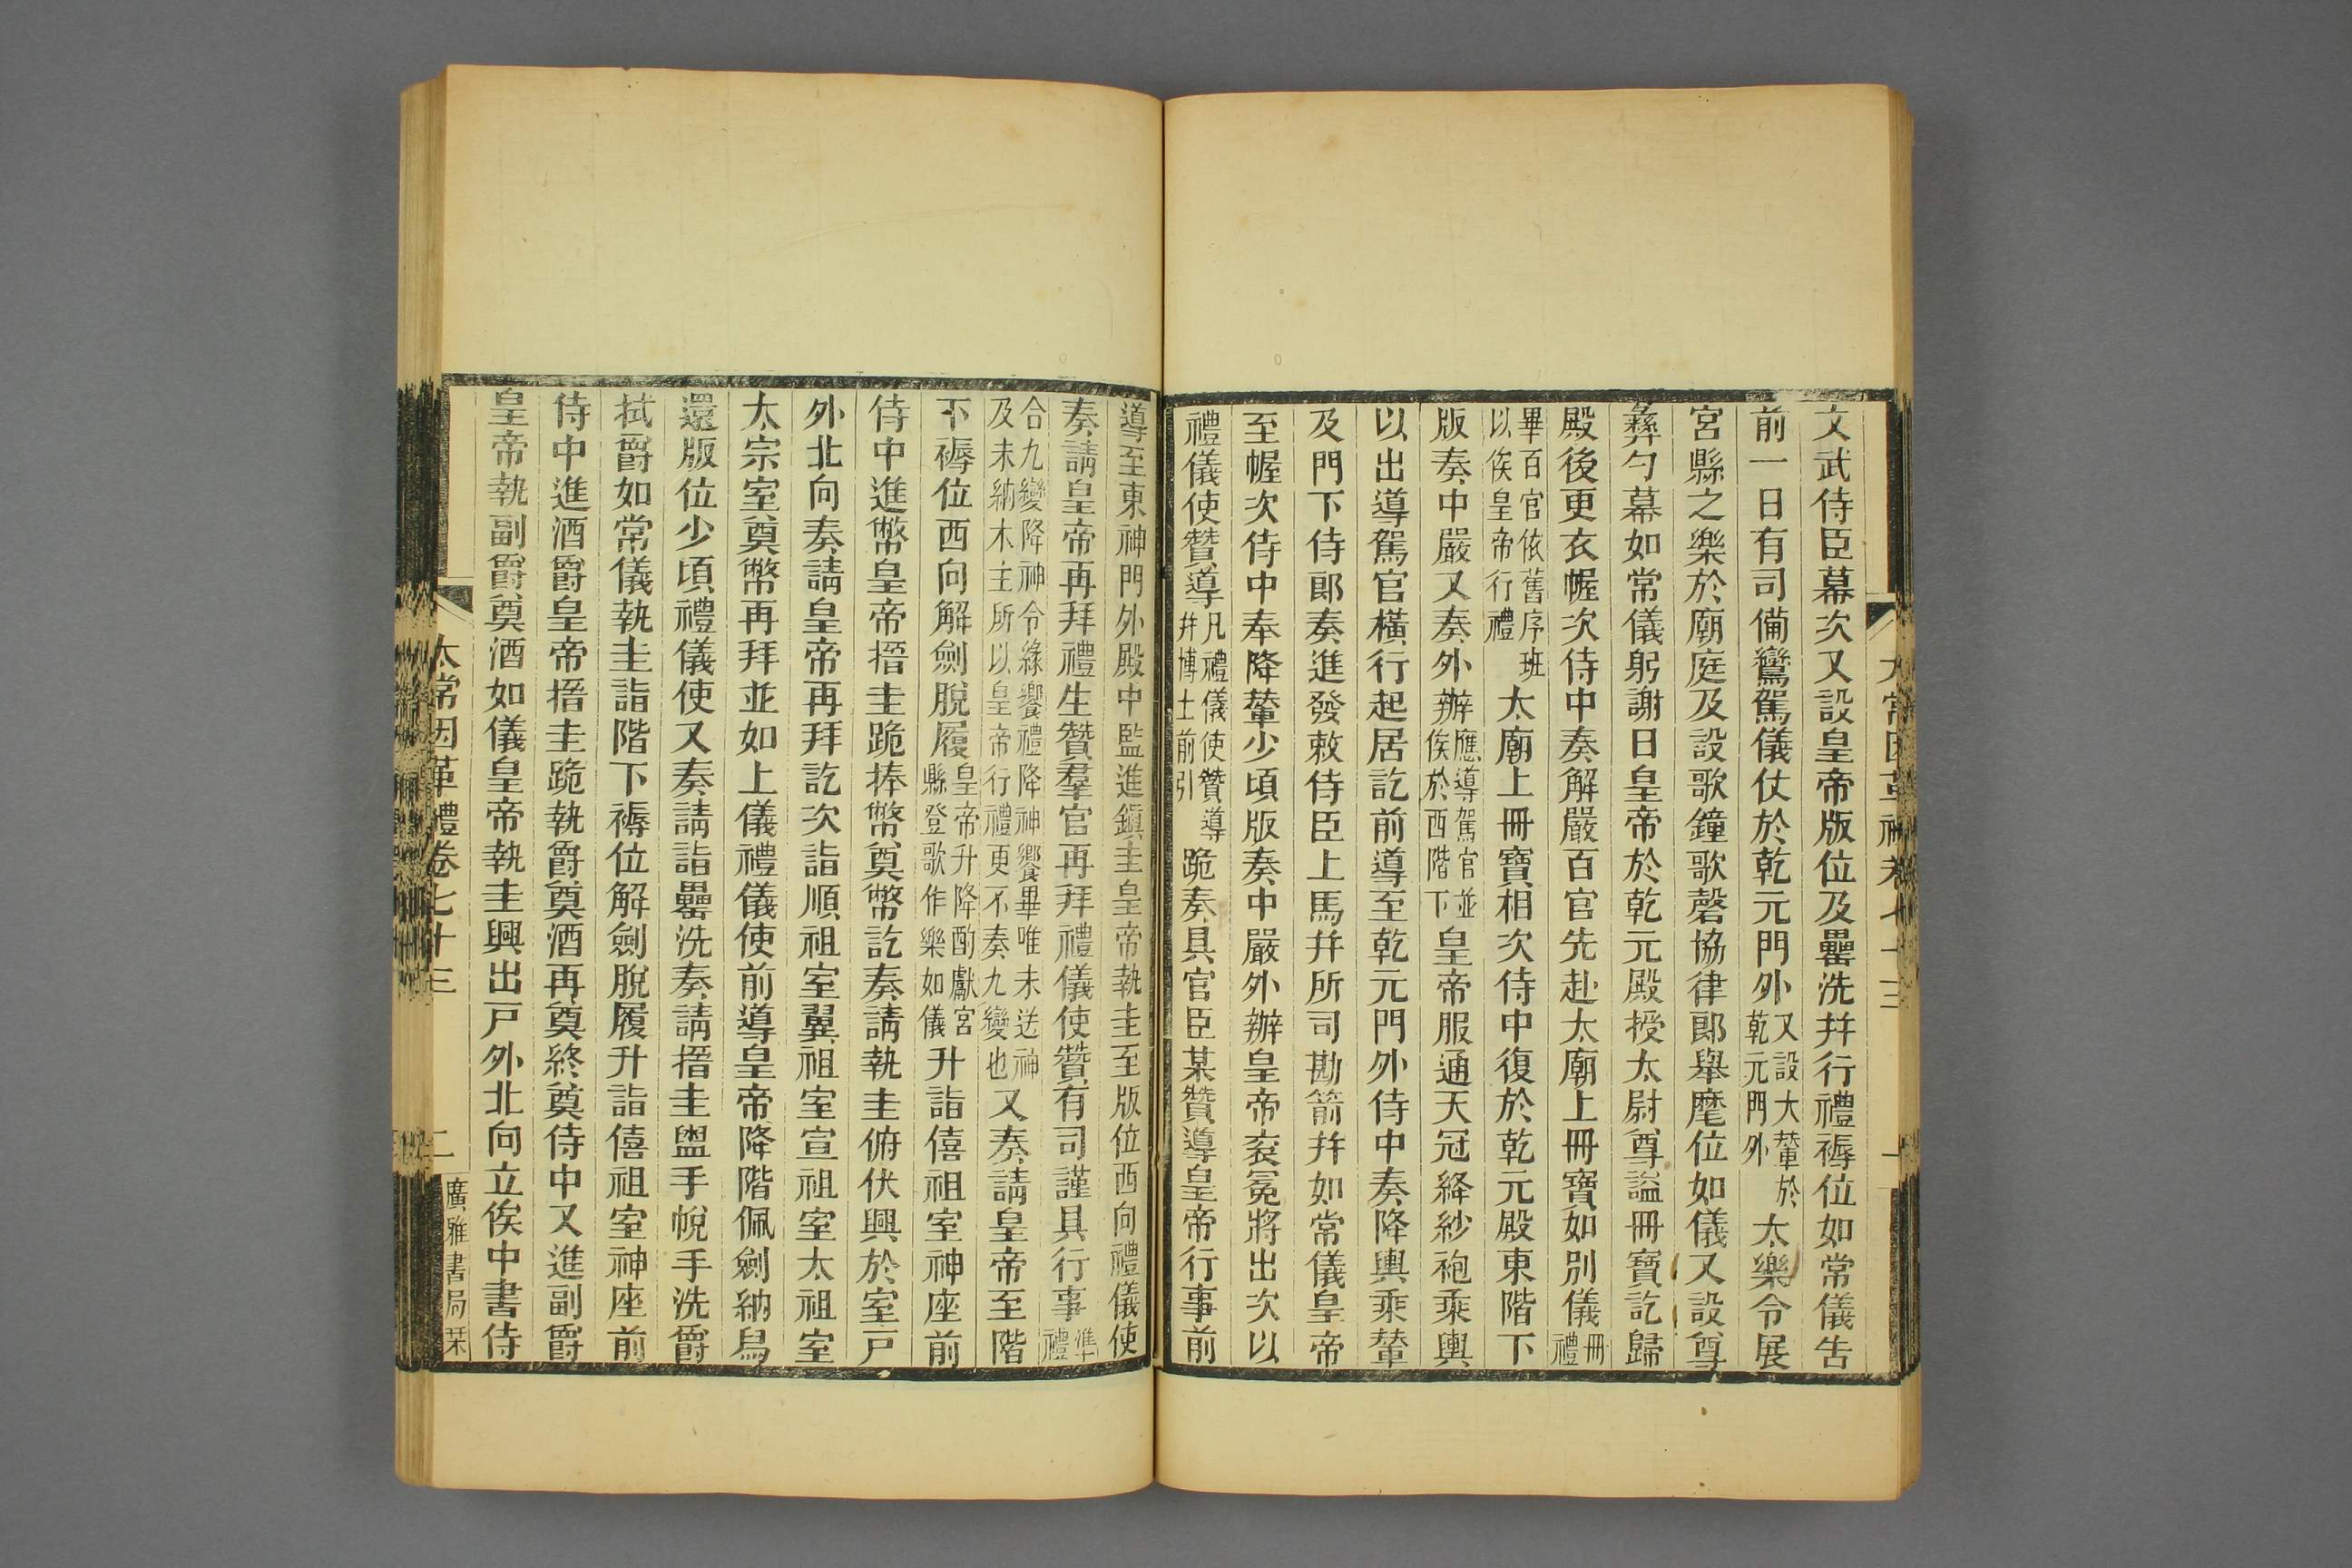 太常因革禮卷七十三
文武侍臣幕次又設皇帝版位及罍洗幷行禮褥位如常儀告
前一日有司備鸞駕儀仗於乾元門外又設大輦於乾元門外太樂令展
宮縣之樂於廟庭及設歌鐘歌磬協律郎舉麾位如儀又設尊
彝勺幕如常儀躬謝日皇帝於乾元殿授太尉尊謚冊寶訖歸
殿後更衣幄次侍中奏解嚴百官先赴太廟上冊寶如別儀冊禮
畢百官依舊序班以俟皇帝行禮太廟上冊寶相次侍中復於乾元殿東階下
版奏中嚴又奏外辦應導駕官並俟於西階下皇帝服通天冠絳紗袍乘輿
以出導駕官橫行起居訖前導至乾元門外侍中奏降輿乘輦
及門下侍郎奏進發敕侍臣上馬幷所司勘箭幷如常儀皇帝
至幄次侍中奉降輦少頃版奏中嚴外辦皇帝袞冕將出次以
禮儀使贊導凡禮儀使贊導幷博士前引跪奏具官臣某贊導皇帝行事前
導至東神門外殿中監進鎭圭皇帝執圭至版位西向禮儀使
奏請皇帝再拜禮生贊羣官再拜禮儀使贊有司謹具行事準禮
合九變降神令緣饗禮降神饗畢唯未送神及未納木主所以皇帝行禮更不奏九變也又奏請皇帝至階
下褥位西向解劍脫履皇帝升降酌獻宮縣登歌作樂如儀升詣僖祖室神座前
侍中進幣皇帝搢圭跪捧幣奠幣訖奏請執圭俯伏興於室戸
外北向奏請皇帝再拜訖次詣順祖室翼祖室宣祖室太祖室
太宗室奠幣再拜並如上儀禮儀使前導皇帝降階佩劍納舄
還版位少頃禮儀使又奏請詣罍洗奏請搢圭盥手帨手洗爵
拭爵如常儀執圭詣階下褥位解劍脫履升詣僖祖室神座前
侍中進酒爵皇帝搢圭跪執爵奠酒再奠終奠侍中又進副爵
皇帝執副爵奠酒如儀皇帝執圭興出戸外北向立俟中書侍
太常因革禮卷七十三
二
廣雅書局栞